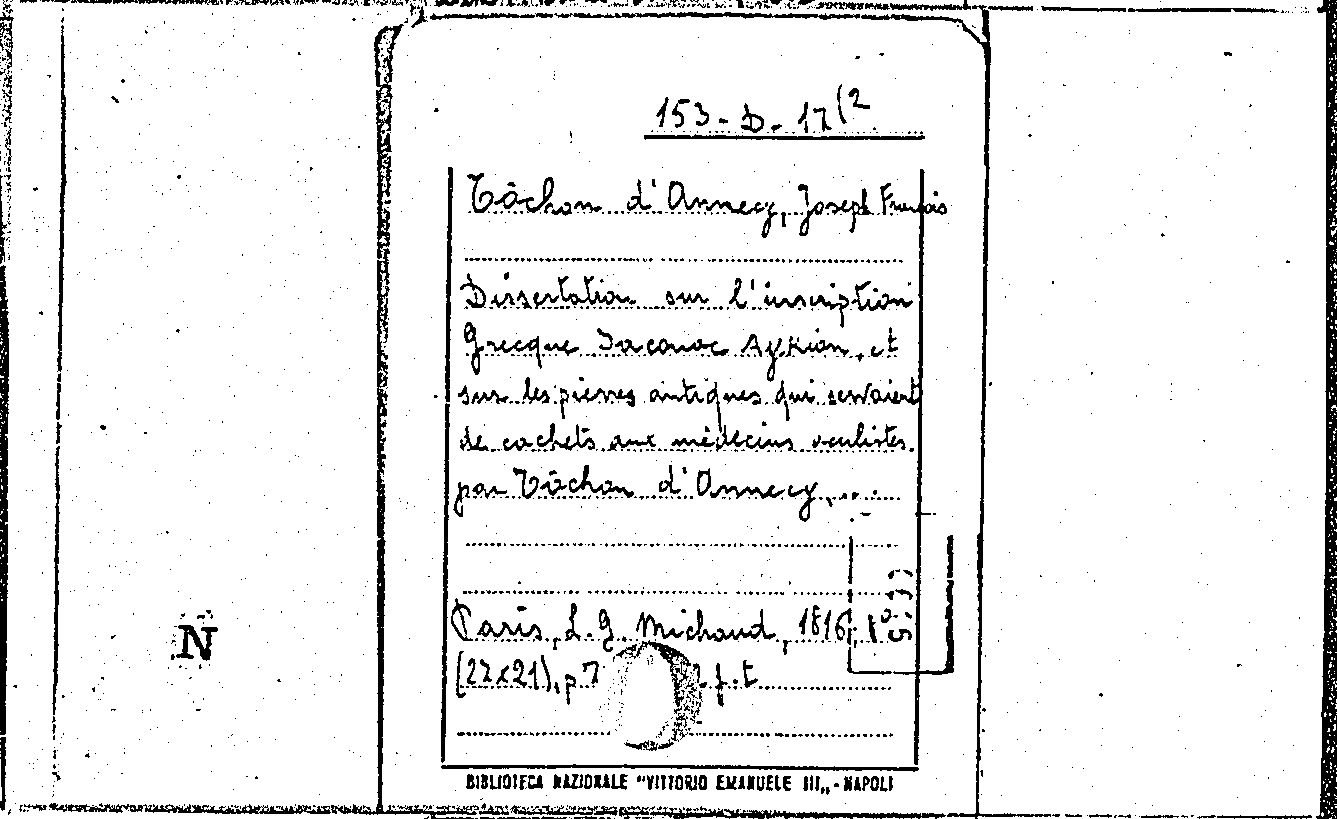 153-D-17(2
Tôchon d'Annecy, Joseph Francois
Dissertation sur l'inscription
Grecque Iaconoc Aykion, et
sur les pierres antiques qui servaient
de cachets aux médecins oculistes.
par Tôchon d'Annecy,...
Paris, L.G. Michaud, 1816,
(27x21), p.7 f.t
N
BIBLIOTECA NAZIONALE "VITTORIO EMANUELE III„-NAPOLI